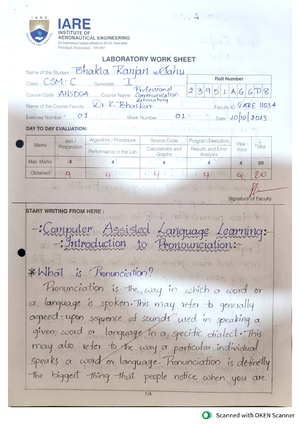 IARE
INSTITUTE OF
AERONAUTICAL ENGINEERING
LABORATORY WORK SHEET
Name of the Student Bhakta Ranjan Sahu
Class CSM-C Semester I Roll Number
Course Code Course Name Professional Communication Laboratory 23951A66D8
Name of the Course Faculty Dr. K. Bhaskar Faculty ID IARE 11034
Exercise Number 01 Week Number 01 Date
DAY TO DAY EVALUATION:
Marks Aim / Preparation Algorithm / Procedure Source Code Program Execution Viva - Voce Total
Performance in the Lab Calculations and Graphs Results and Error Analysis
Max. Marks 4 4 4 4 4 20
Obtained 4 4 4 4 4 20
Signature of Faculty
START WRITING FROM HERE :
-:Computer Assisted Language Learning:-
-:Introduction to Pronounciation:-
* What is Pronunciation?
Pronunciation is the way in which a word or
a language is spoken. This may refer to generally
agreed-upon sequence of sounds used in speaking a
given word or language in a specific dialect. This
may also refer to the way a particular individual
speaks a word or language. Pronunciation is definetly
the biggest thing that people notice when you are
Scanned with OKEN Scanner